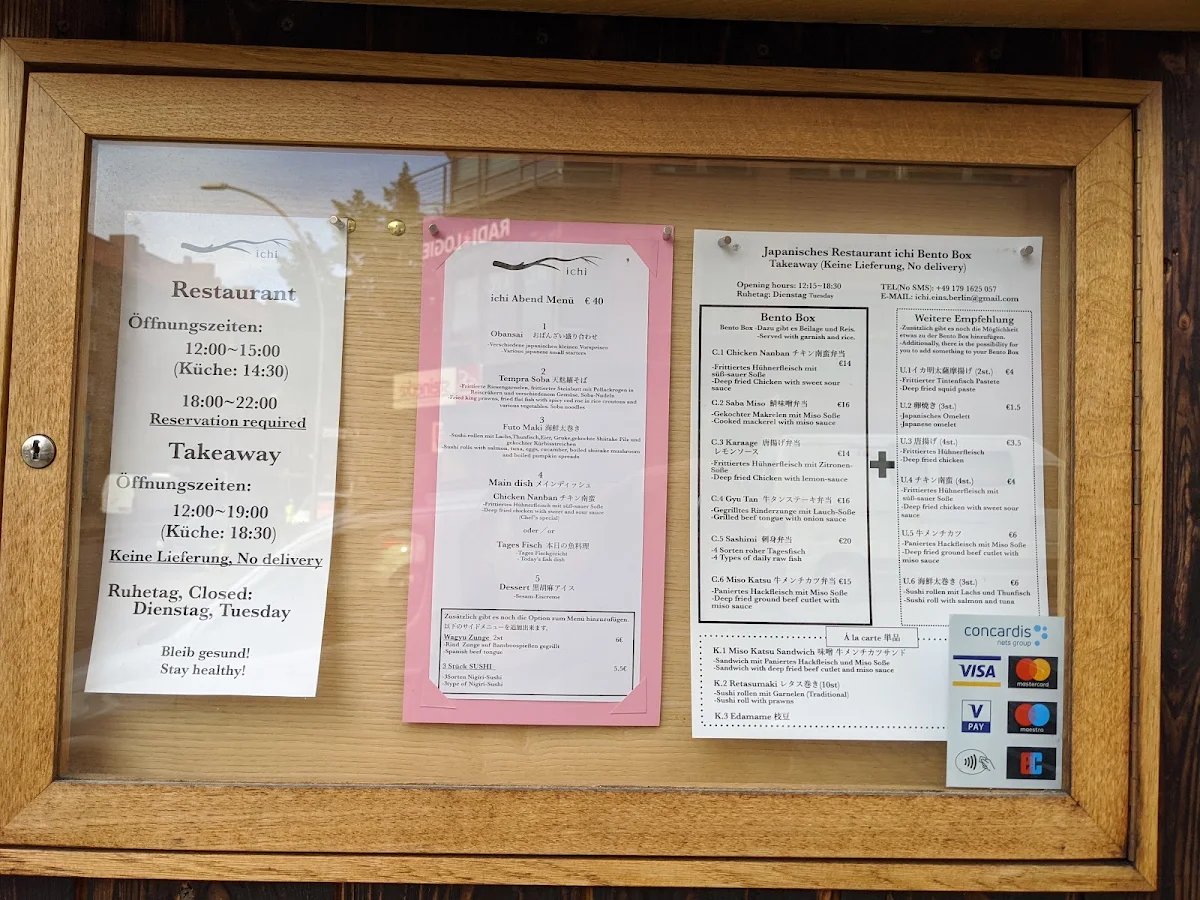 ichi
Restaurant
Öffnungszeiten:
12:00~15:00
(Küche: 14:30)
18:00~22:00
Reservation required
Takeaway
Öffnungszeiten:
12:00~19:00
(Küche: 18:30)
Keine Lieferung, No delivery
Ruhetag, Closed:
Dienstag, Tuesday
Bleib gesund!
Stay healthy!
RADIOLOGIE
ichi
ichi Abend Menü € 40
1
Obansai おばんざい盛り合わせ
-Verschiedene japanischen kleinen Vorspeisen
-Various japanese small starters
2
Tempra Soba 天麩羅そば
-Frittierte Riesengarnelen, frittiertes Steinbutt mit Pollackrogen in
Reiscräkern und verschiedenem Gemüse, Soba-Nudeln
-Fried king prawns, fried flat fish with spicy cod roe in rice croutons and
various vegetables. Soba noodles
3
Futo Maki 海鮮太巻き
-Sushi rollen mit Lachs,Thunfisch,Eier, Gruke,gekochte Shiitake Pilz und
gekochter Kürbisstreichen
-Sushi rolls with salmon, tuna, eggs, cucumber, boiled shiitake mushroom
and boiled pumpkin spreads
4
Main dish メインディッシュ
Chicken Nanban チキン南蛮
-Frittiertes Hühnerfleisch mit süß-sauer Soße
-Deep fried chicken with sweet and sour sauce
(Chef's special)
oder／or
Tages Fisch 本日の魚料理
-Tages Fischgericht
-Today's fish dish
5
Dessert 黒胡麻アイス
-Sesam-Eiscreme
Zusätzlich gibt es noch die Option zum Menü hinzuzufügen.
以下のサイドメニューを追加出来ます。
Wagyu Zunge 2st 6€
-Rind Zunge auf Bambusspießen gegrillt
-Spanish beef tongue
3 Stück SUSHI 5.5€
-3Sorten Nigiri-Sushi
-3type of Nigiri-Sushi
Japanisches Restaurant ichi Bento Box
Takeaway (Keine Lieferung, No delivery)
Opening hours: 12:15~18:30
Ruhetag: Dienstag Tuesday
TEL(No SMS): +49 179 1625 057
E-MAIL: ichi.eins.berlin@gmail.com
Bento Box
Bento Box -Dazu gibt es Beilage und Reis.
-Served with garnish and rice.
C.1 Chicken Nanban チキン南蛮弁当
€14
-Frittiertes Hühnerfleisch mit
süß-sauer Soße
-Deep fried Chicken with sweet sour
sauce
C.2 Saba Miso 鯖味噌弁当 €16
-Gekochter Makrelen mit Miso Soße
-Cooked mackerel with miso sauce
C.3 Karaage 唐揚げ弁当
レモンソース €14
-Frittiertes Hühnerfleisch mit Zitronen-
Soße
-Deep fried Chicken with lemon-sauce
C.4 Gyu Tan 牛タンステーキ弁当 €16
-Gegrilltes Rinderzunge mit Lauch-Soße
-Grilled beef tongue with onion sauce
C.5 Sashimi 刺身弁当 €20
-4 Sorten roher Tagesfisch
-4 Types of daily raw fish
C.6 Miso Katsu 牛メンチカツ弁当 €15
-Paniertes Hackfleisch mit Miso Soße
-Deep fried ground beef cutlet with
miso sauce
+
Weitere Empfehlung
-Zusätzlich gibt es noch die Möglichkeit
etwas zu der Bento Box hinzufügen.
-Additionally, there is the possibility for
you to add something to your Bento Box
U.1イカ明太薩摩揚げ (2st.) €4
-Frittierter Tintenfisch Pastete
-Deep fried squid paste
U.2 卵焼き (3st.) €1.5
-Japanisches Omelett
-Japanese omelet
U.3 唐揚げ (4st.) €3.5
-Frittiertes Hühnerfleisch
-Deep fried chicken
U.4 チキン南蛮 (4st.) €4
-Frittiertes Hühnerfleisch mit
süß-sauer Soße
-Deep fried chicken with sweet sour
sauce
U.5 牛メンチカツ €6
-Paniertes Hackfleisch mit Miso Soße
-Deep fried ground beef cutlet with
miso sauce
U.6 海鮮太巻き (3st.) €6
-Sushi rollen mit Lachs und Thunfisch
-Sushi roll with salmon and tuna
À la carte 単品
K.1 Miso Katsu Sandwich 味噌 牛メンチカツサンド
-Sandwich mit Paniertes Hackfleisch und Miso Soße
-Sandwich with deep fried beef cutlet and miso sauce
K.2 Retasumaki レタス巻き(10st)
-Sushi rollen mit Garnelen (Traditional)
-Sushi roll with prawns
K.3 Edamame 枝豆
concardis
nets group
VISA
mastercard
V PAY
maestro
EC